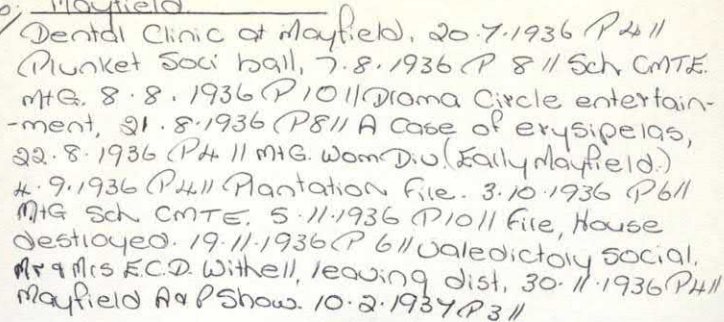 Mayfield.
Dental Clinic at Mayfield, 20.7.1936 (P4//
(Plunket Soci ball, 7.8.1936 (P 8 // Sch CMTE.
MtG. 8.8.1936 (P10 // Drama Circle entertain-
-ment, 21.8.1936 (P8// A Case of erysipelas,
22.8.1936 (P4 // MtG. Wom Div. (Early Mayfield.)
4.9.1936 (P4// Plantation Fire. 3.10.1936 (P6//
MtG Sch CMTE. 5.11.1936 (P10// Fire, House
destroyed. 19.11.1936 (P 6// Valedictory Social.
Mr & Mrs E.C.D. Withell, leaving dist, 30.11.1936 (P4//
Mayfield A & P Show. 10.2.1937 (P3//